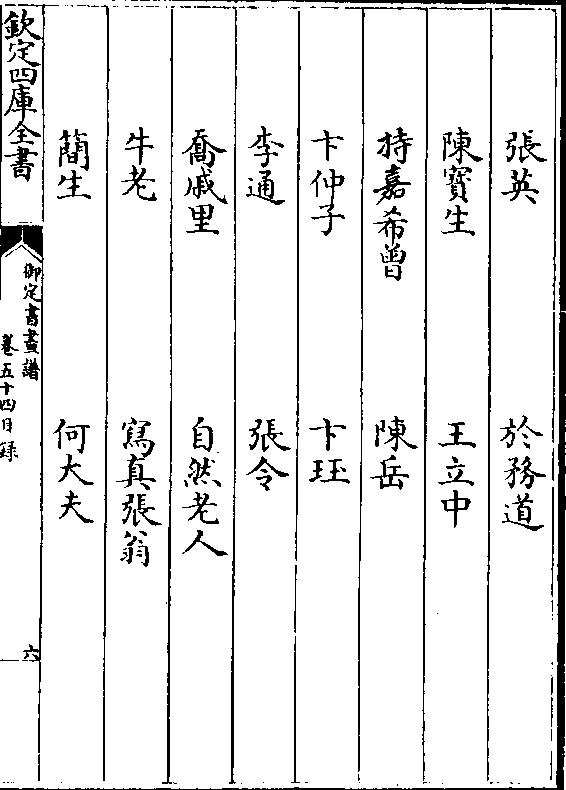 張英　於務道
陳寳生　王立中
持嘉希曾　陳岳
卞仲子　卞珏
李通　張令
喬戚里　自然老人
牛老　寫真張翁
蕳生　何大夫
欽定四庫全書
御定書畫譜
卷五十四目錄
六